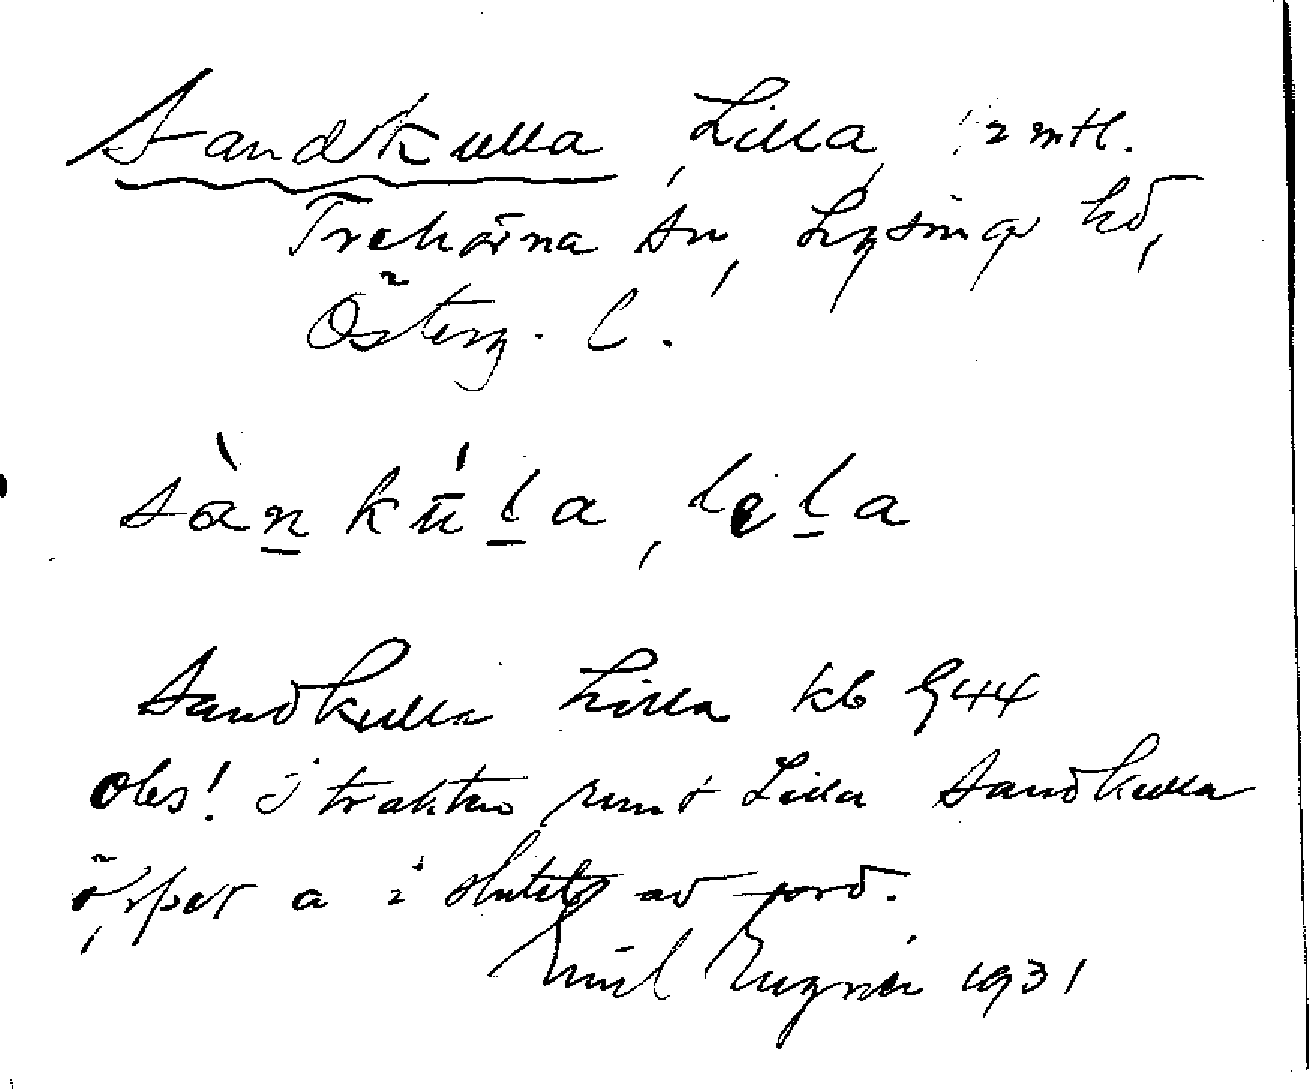 Sandkulla, Lilla, 1/2 mtl.
Trehörna sn, Lysings hd,
Österg. l.
sànkúl̠a, lɩl̠a
Sandkulla Lilla kb 944
Obs! I trakten runt Lilla Sandkulla
öppet a i slutet av ord.
Emil 1931